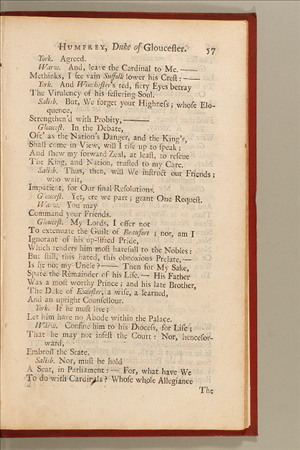 HUMFREY, Duke of Gloucester. 57
York. Agreed.
Warw. And, leave the Cardinal to Me. ——
Methinks, I see vain Suffolk lower his Crest: ——
York. And Winchester's red, fiery Eyes betray
The Virulency of his festering Soul.
Salisb. But, We forget your Highness; whose Elo-
quence,
Strengthen'd with Probity, ——
Glouceft. In the Debate,
Oft' as the Nation's Danger, and the King's,
Shall come in View, will I rise up to speak;
And shew my forward Zeal, at least, to rescue
The King, and Nation, trusted to my Care.
Salisb. Thus, then, will We instruct our Friends;
who wait,
Impatient, for Our final Resolutions.
Glouceft. Yet, ere we part; grant One Request.
Warw. You may
Command your Friends.
Glouceft. My Lords, I offer not
To extenuate the Guilt of Beaufort; nor, am I
Ignorant of his up-lifted Pride,
Which renders him most harefull to the Nobles:
But still, this hated, this obnoxious Prelate, —
Is he not my Uncle? —— Then for My Sake,
Spare the Remainder of his Life. — His Father
Was a most worthy Prince; and his late Brother,
The Duke of Exeter, a wise, a learned,
And an upright Counsellour.
York. If he must live;
Let him have no Abode within the Palace.
Warw. Confine him to his Diocess, for Life;
That he may not infest the Court: Nor, hencefor-
ward,
Embroil the State.
Salisb. Nor, must he hold
A Seat, in Parliament: — For, what have We
To do with Cardinals? Whose whole Allegiance
The